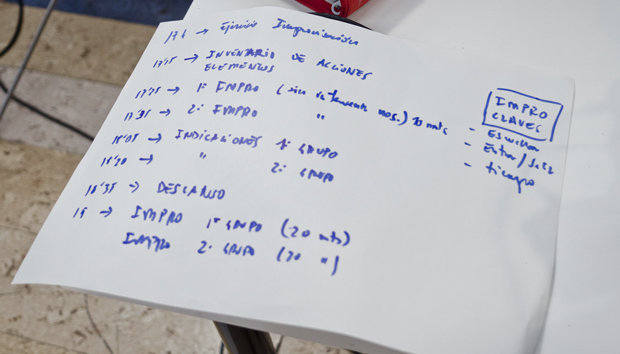 17h → Ejercicio Improvisación
17'15 → INVENTARIO DE ACCIONES
ELEMENTOS
17'25 → 1ª IMPRO ( nos.) 20 mts
17'35 → 2ª IMPRO "
18'05 → INDICACIONES 1º GRUPO
18'20 → " 2º GRUPO
18'35 → DESCANSO
19 → IMPRO 1º GRUPO (20 mts)
IMPRO 2º GRUPO (20 ")
IMPRO
CLAVES
- Escuchar
- Entrar/Salir
- tiempo